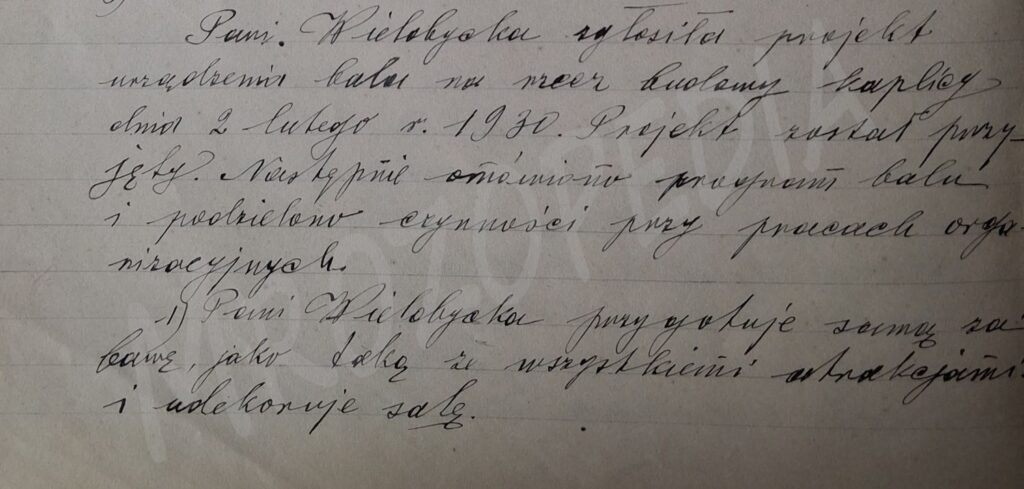 Pani. Wielobycka zgłosiła projekt
urządzenia balu na rzecz budowy kaplicy
dnia 2 lutego r. 1930. Projekt został przy-
jęty. Następnie omówiono program balu
i podzielono czynności przy pracach orga-
nizacyjnych.
1) Pani Wielobycka przygotuje samą za
bawę, jako taką ze wszystkiemi atrakcjami
i udekoruje salę.
MROZOPEDIA